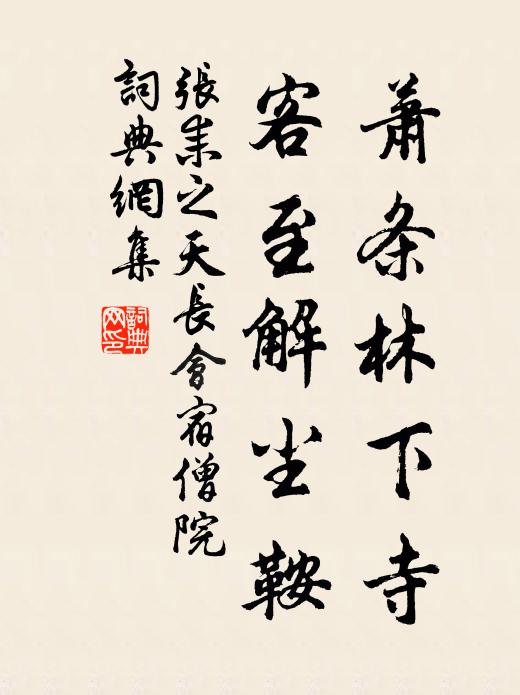 蕭条林下寺
客至解尘鞍
張耒之天長會宿僧院
詞典網集
詞典网印